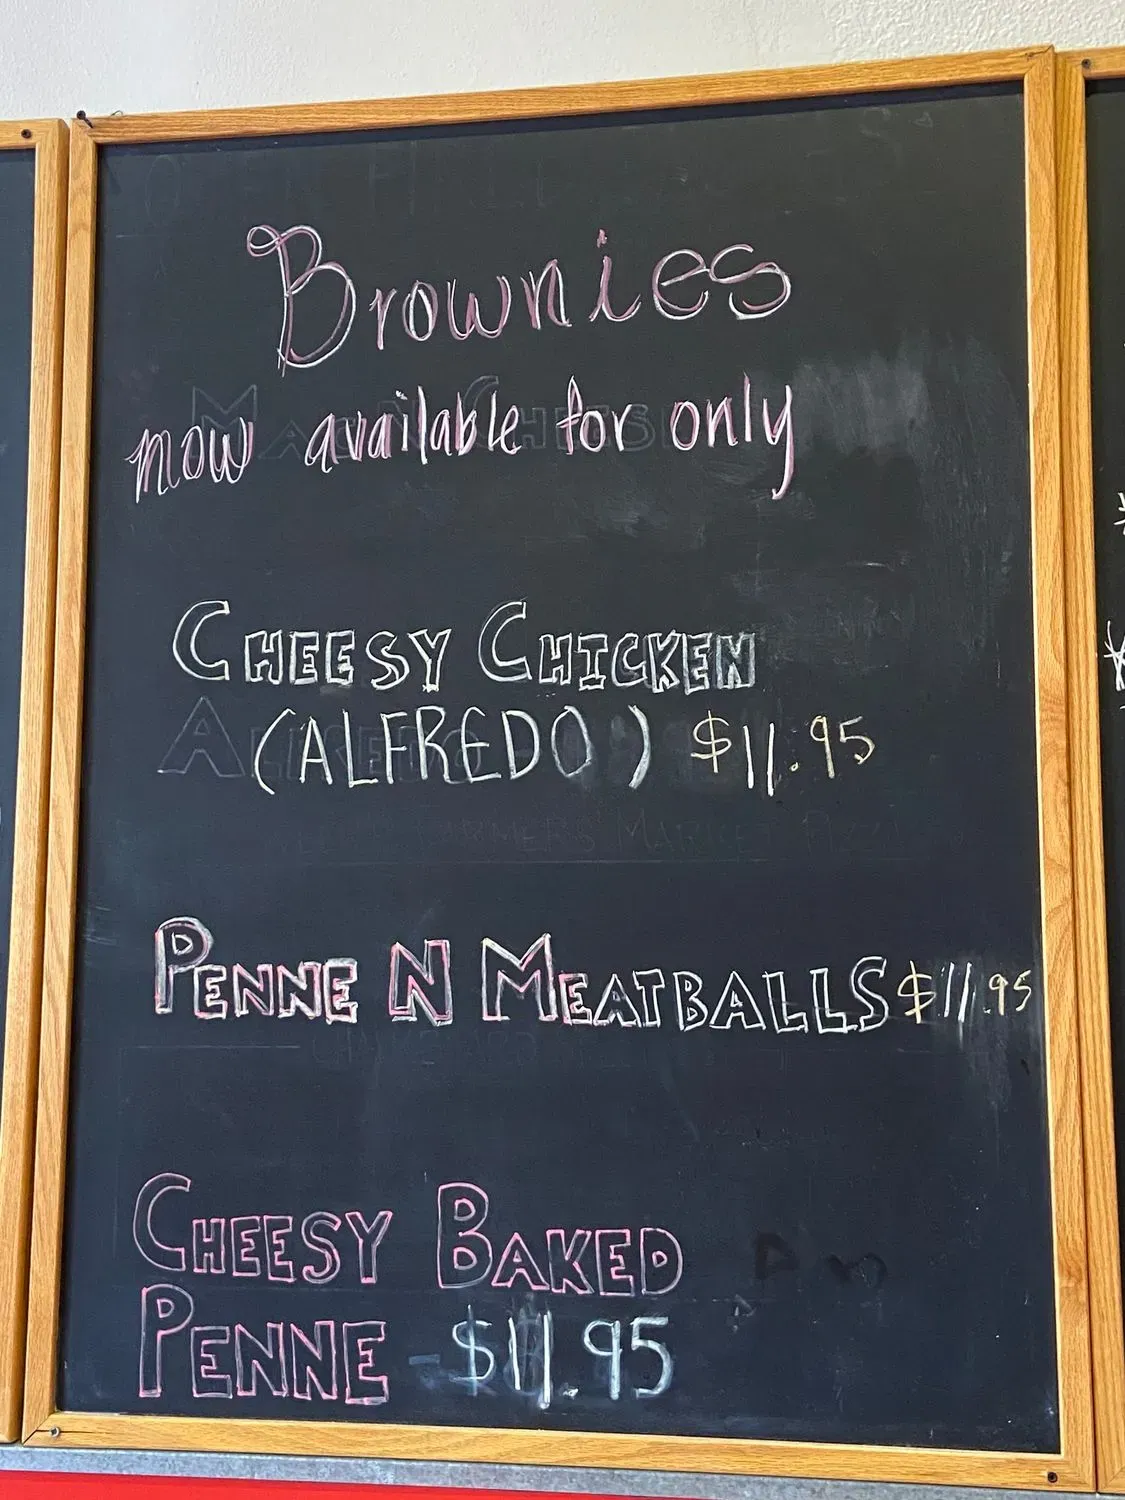 Brownies
now available for only
CHEESY CHICKEN
(ALFREDO) $11.95
PENNE N MEATBALLS $11.95
CHEESY BAKED
PENNE - $11.95